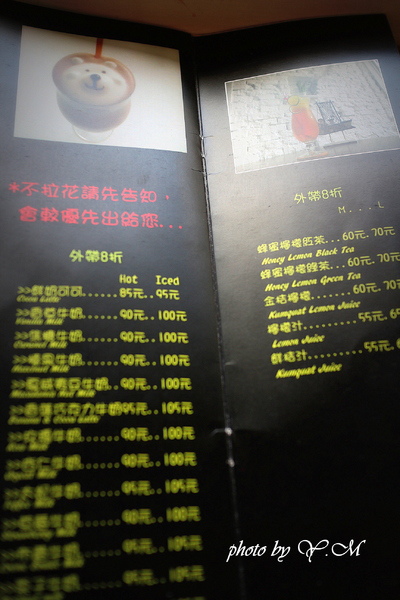 *不拉花請先告知，
會較優先出給您...
外帶8折
Hot Iced
>>鮮奶可可......85元..95元
Coco Latte
>>香草牛奶......90元..100元
Vanilla Milk
>>焦糖牛奶......90元..100元
>>榛果牛奶......90元..100元
Hazelnut Milk
>>夏威夷豆牛奶90元..100元
>>香蕉巧克力牛奶95元..105元
>>玫瑰牛奶......90元..100元
Rose Milk
>>杏仁牛奶......90元..100元
牛奶......95元..105元
牛奶......90元..100元
牛奶......95元..105元
牛奶......95元..105元
外帶8折
M....L
蜂蜜檸檬紅茶...60元.70元
Honey Lemon Black Tea
蜂蜜檸檬綠茶....60元.70元
Honey Lemon Green Tea
金桔檸檬..........60元.70
Kumquat Lemon Juice
檸檬汁............55元.6
Lemon Juice
鮮桔汁............55元.6
Kumquat Juice
photo by Y.M